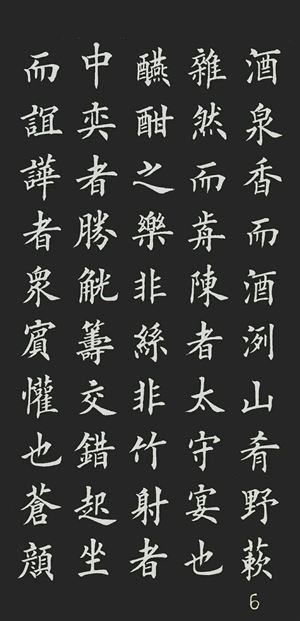 酒泉香而酒洌山肴野蔌
雜然而歬陳者太守宴也
醼酣之樂非絲非竹射者
中奕者勝觥籌交錯起坐
而諠譁者衆賓懽也蒼顔
6